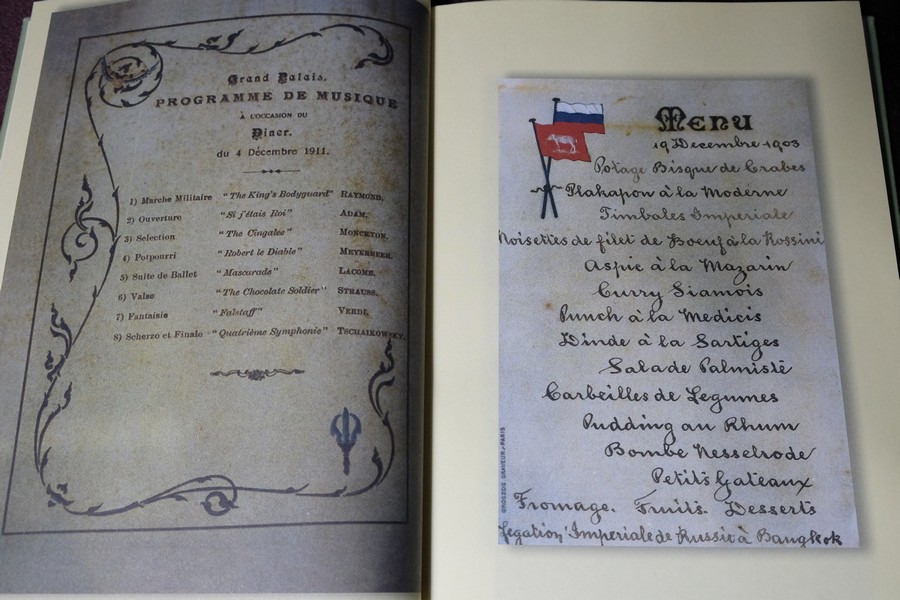 Grand Palais.
PROGRAMME DE MUSIQUE
À L'OCCASION DU
Dîner.
du 4 Décembre 1911.
1) Marche Militaire "The King's Bodyguard" RAYMOND,
2) Ouverture "Si j'étais Roi" ADAM,
3) Selection "The Cingalee" MONCKTON,
4) Potpourri "Robert le Diable" MEYERBEER,
5) Suite de Ballet "Mascarade" LACOME,
6) Valse "The Chocolate Soldier" STRAUSS,
7) Fantaisie "Falstaff" VERDI,
8) Scherzo et Finale "Quatrième Symphonie" TSCHAIKOWSKY.
Menu
19 Decembre 1903
Potage Bisque de Crabes
Plakapon à la Modérne
Timbales Imperiale
Noisettes de filet de Boeuf à la Rossini
Aspic à la Mazarin
Curry Siamois
Punch à la Medicis
Dinde à la Sartiges
Salade Palmiste
Corbeilles de Legumes
Pudding au Rhum
Bombe Nesselrode
Petits Gateaux
Fromage. Fruits. Desserts
Legation Imperiale de Russie à Bangkok
GRAVEUR-PARIS